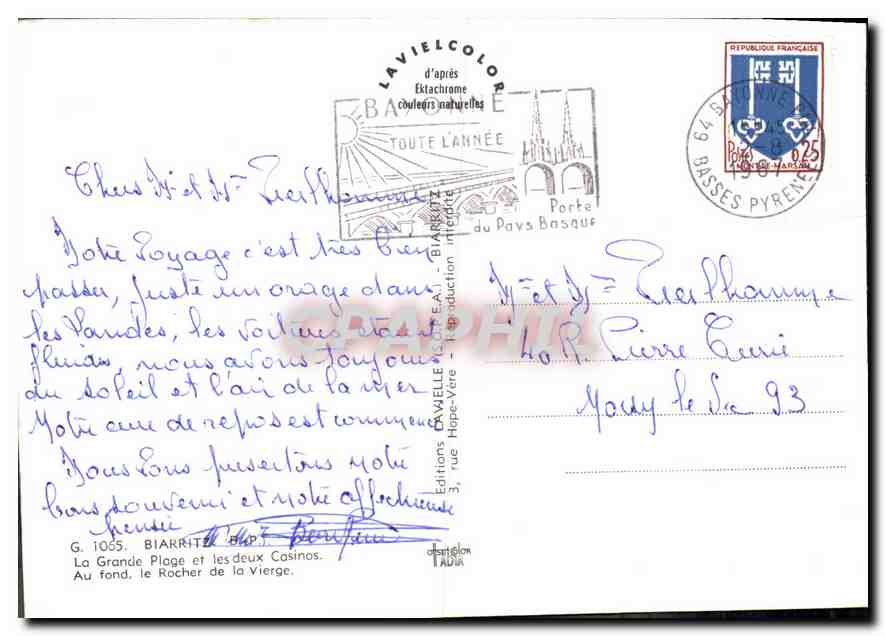 LAVIELCOLOR
d'après
Ektachrome
couleurs naturelles
BAYONNE
TOUTE L'ANNÉE
Porte
du Pays Basque
REPUBLIQUE FRANÇAISE
Postes 0,25
MONT-DE-MARSAN
64 BAYONNE
8
1967
BASSES PYRENEES
Chers Mr et Mme
Notre Voyage c'est très bien
passer, juste un orage dans
les Landes, les voitures étaient
fluides, nous avons toujours
du soleil et l'air de la mer
Notre cure de repos est commencé
Nous Vous présentons notre
bons souvenir et notre affectueuse
pensée
Mr et Mme
40 R. Pierre Curie
Noisy le Sec 93
Editions LAVIELLE (S.O.P.E.A.) - BIARRITZ
3, rue Hope-Vère - Reproduction interdite
G. 1065. BIARRITZ B.-P.
La Grande Plage et les deux Casinos.
Au fond, le Rocher de la Vierge.
CPAPHIL